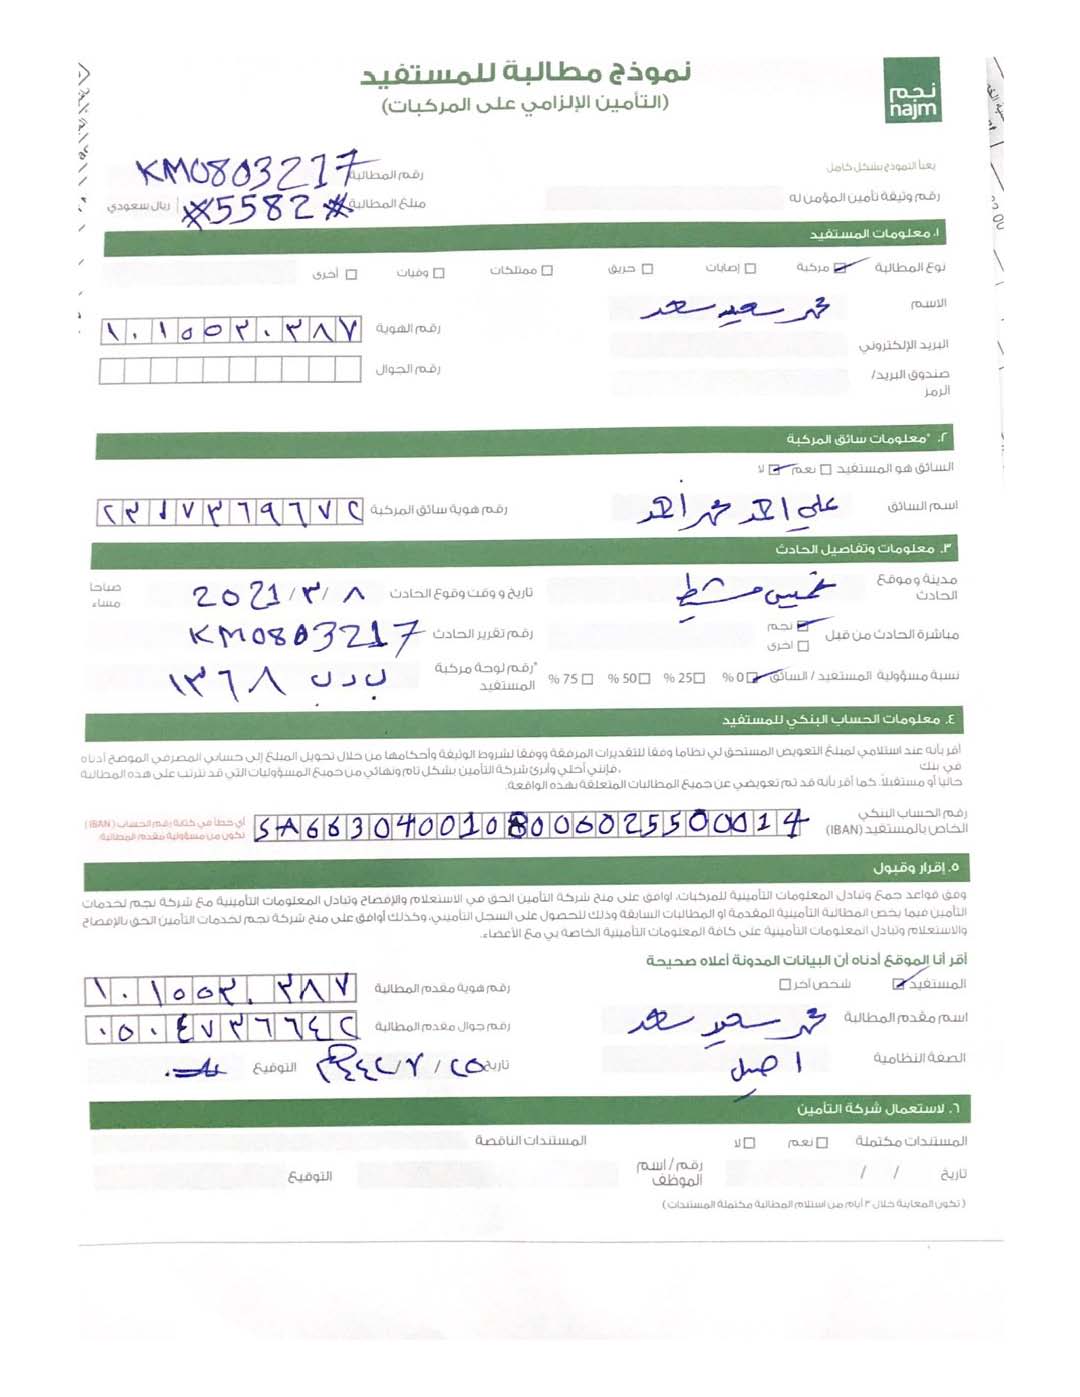 نجم
najm
نموذج مطالبة للمستفيد
(التأمين الإلزامي على المركبات)
يعبأ النموذج بشكل كامل
رقم المطالبة KM0803217
رقم وثيقة تأمين المؤمن له
مبلغ المطالبة #5582# ريال سعودي
١. معلومات المستفيد
نوع المطالبة مركبة إصابات حريق ممتلكات وفيات أخرى
الاسم محمد سعيد سعد
رقم الهوية ١٠١٥٥٣٠٣٨٧
البريد الإلكتروني
رقم الجوال
صندوق البريد/
الرمز
٢. *معلومات سائق المركبة
السائق هو المستفيد نعم لا
اسم السائق علي احمد محمد احمد
رقم هوية سائق المركبة ٢٣١٧٣٦٩٦٧٢
٣. معلومات وتفاصيل الحادث
مدينة وموقع
الحادث خميس مشيط
تاريخ و وقت وقوع الحادث ٨ /٣/ 2021
صباحا
مساء
مباشرة الحادث من قبل نجم
اخرى
رقم تقرير الحادث KM0803217
نسبة مسؤولية المستفيد / السائق 0% 25% 50% 75%
*رقم لوحة مركبة
المستفيد ب د ب ١٣٦٨
٤. معلومات الحساب البنكي للمستفيد
أقر بأنه عند استلامي لمبلغ التعويض المستحق لي نظاما وفقا للتقديرات المرفقة ووفقا لشروط الوثيقة وأحكامها من خلال تحويل المبلغ إلى حسابي المصرفي الموضح أدناه
في بنك ،فإنني أخلي وأبرئ شركة التأمين بشكل تام ونهائي من جميع المسؤوليات التي قد تترتب على هذه المطالبة
حالياً أو مستقبلاً. كما أقر بأنه قد تم تعويضي عن جميع المطالبات المتعلقة بهذه الواقعة.
رقم الحساب البنكي
الخاص بالمستفيد (IBAN) SA6630400108006025500014
أي خطأ في كتابة رقم الحساب (IBAN)
تكون من مسؤولية مقدم المطالبة
٥. إقرار وقبول
وفق قواعد جمع وتبادل المعلومات التأمينية للمركبات، اوافق على منح شركة التأمين الحق في الاستعلام والإفصاح وتبادل المعلومات التأمينية مع شركة نجم لخدمات
التأمين فيما يخص المطالبة التأمينية المقدمة او المطالبات السابقة وذلك للحصول على السجل التأميني، وكذلك أوافق على منح شركة نجم لخدمات التأمين الحق بالإفصاح
والاستعلام وتبادل المعلومات التأمينية على كافة المعلومات التأمينية الخاصة بي مع الأعضاء.
أقر أنا الموقع أدناه أن البيانات المدونة أعلاه صحيحة
المستفيد شخص آخر
رقم هوية مقدم المطالبة ١٠١٥٥٣٠٣٨٧
اسم مقدم المطالبة محمد سعيد سعد
رقم جوال مقدم المطالبة ٠٥٠٤٧٣٦٦٤٢
الصفة النظامية اصيل
تاريخ ٢٥ / ٧
التوقيع
٦. لاستعمال شركة التأمين
المستندات مكتملة نعم لا
المستندات الناقصة
تاريخ / /
رقم / اسم
الموظف
التوقيع
(تكون المعاينة خلال ٣ أيام من استلام المطالبة مكتملة المستندات)